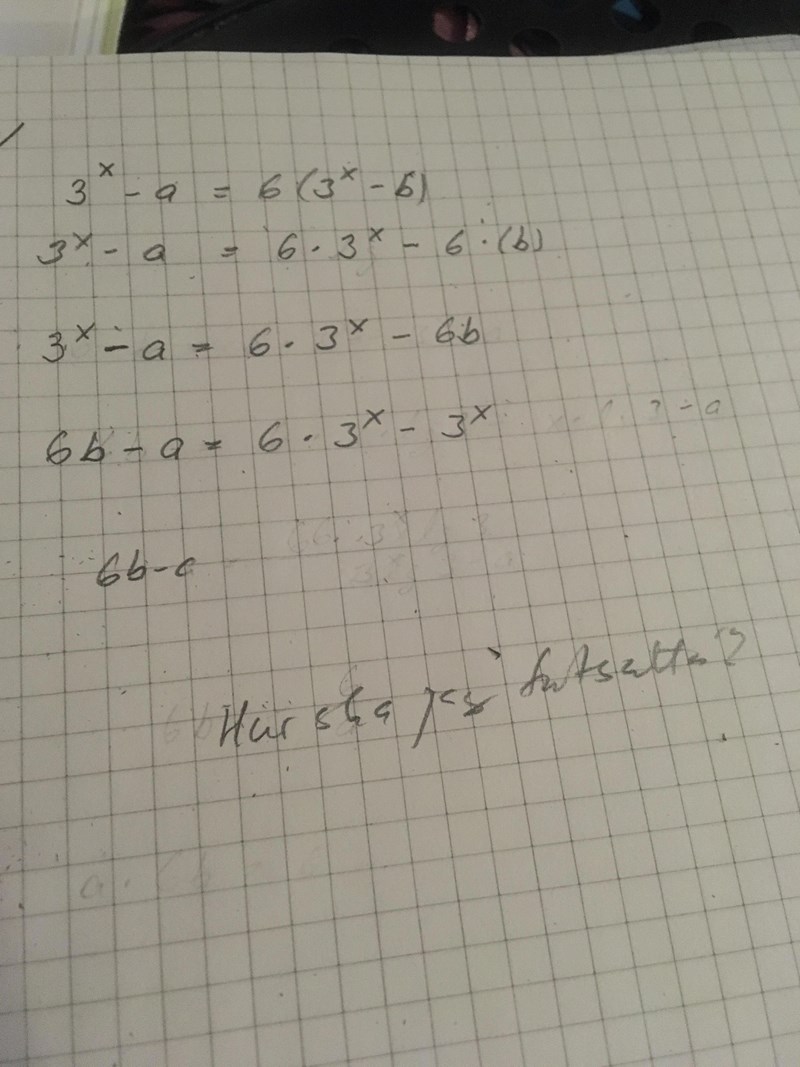 3^x - a = 6(3^x - b)
3^x - a = 6 · 3^x - 6 · (b)
3^x - a = 6 · 3^x - 6b
6b - a = 6 · 3^x - 3^x
6b - a
Hur ska jag fortsätta?